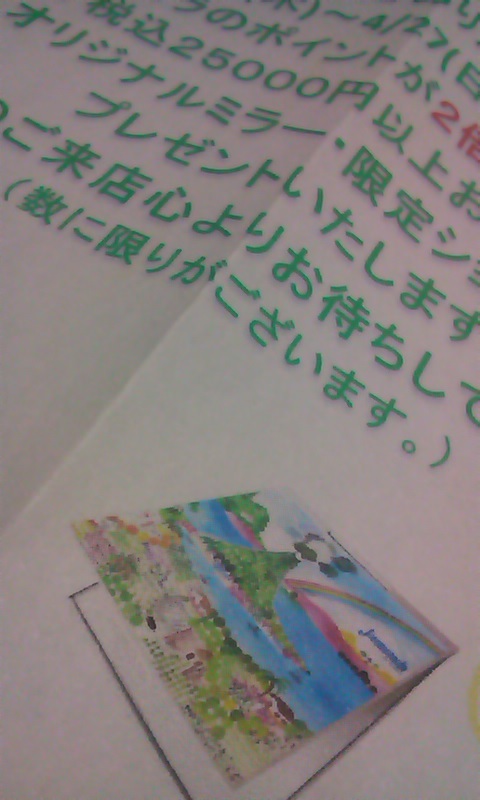 ～4/27(日
のポイントが2倍
税込25000円以上お
オリジナルミラー・限定シ
プレゼントいたします
のご来店心よりお待ちして
（数に限りがございます。）